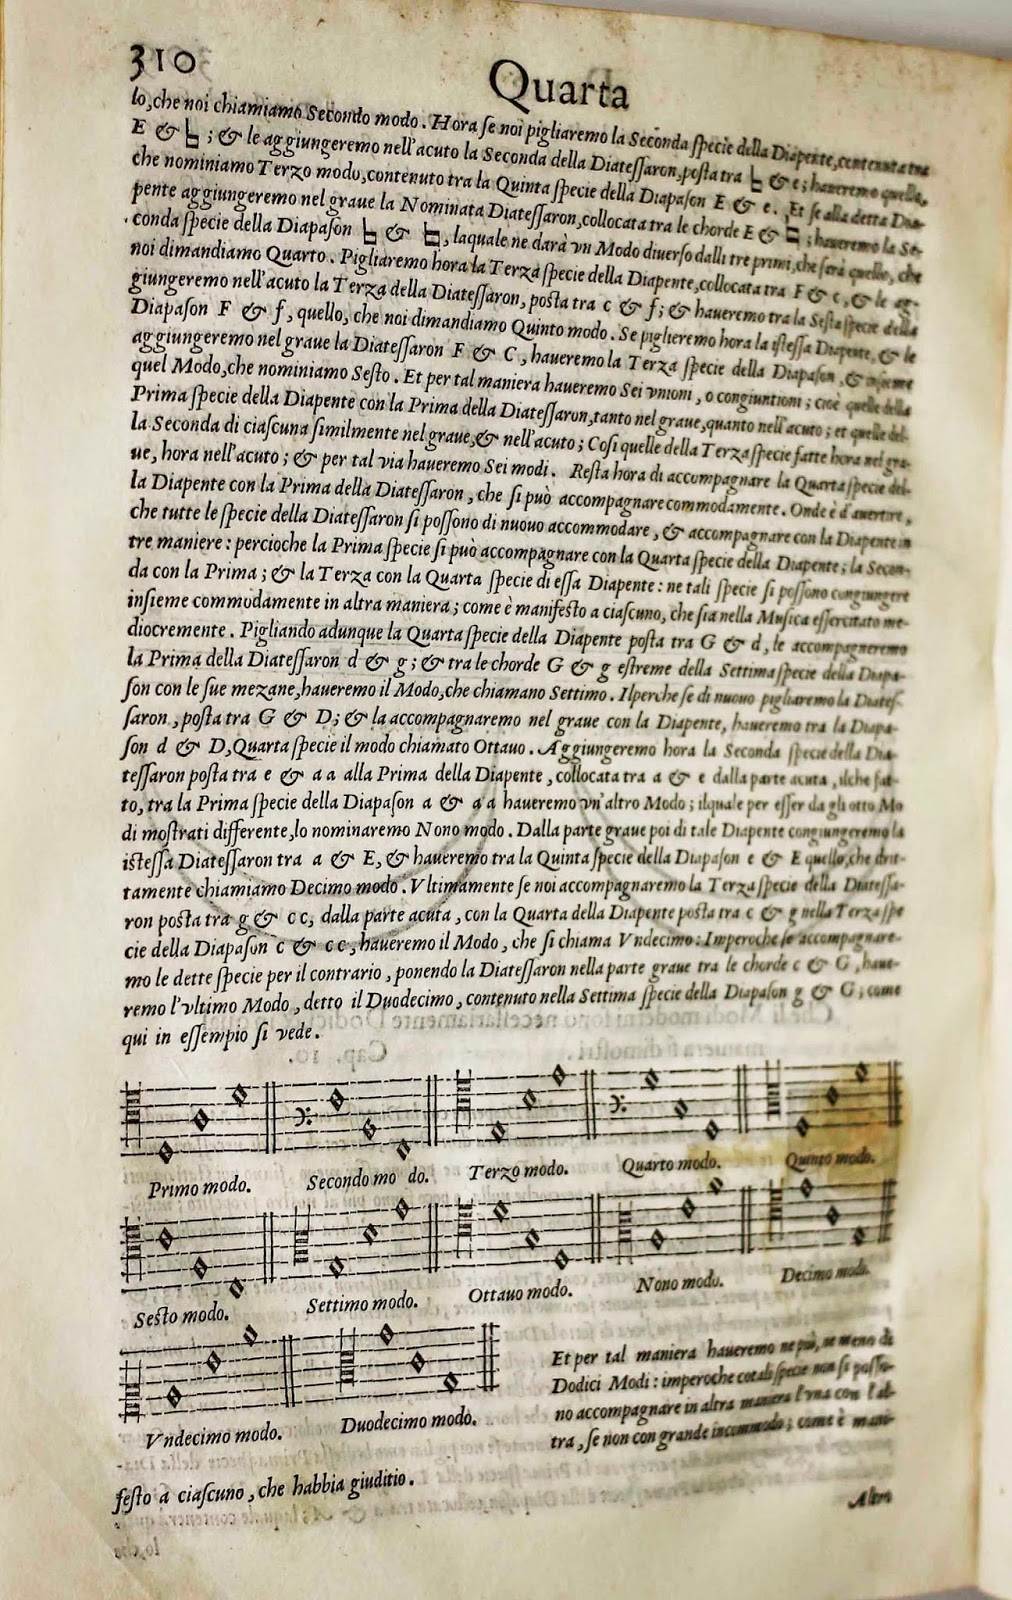 310
Quarta
lo, che noi chiamiamo Secondo modo. Hora se noi pigliaremo la Seconda specie della Diapente, contenuta tra
E & ♮; & le aggiungeremo nell'acuto la Seconda della Diatessaron, posta tra ♮ & e; haueremo quello,
che nominiamo Terzo modo, contenuto tra la Quinta specie della Diapason E & e. Et se alla detta Dia-
pente aggiungeremo nel graue la Nominata Diatessaron, collocata tra le chorde E & ♮; haueremo la Se-
conda specie della Diapason ♮ & ♮, laquale ne darà vn Modo diuerso dalli tre primi, che sarà quello, che
noi dimandiamo Quarto. Pigliaremo hora la Terza specie della Diapente, collocata tra F & c, & le ag-
giungeremo nell'acuto la Terza della Diatessaron, posta tra c & f; & haueremo tra la Sesta specie della
Diapason F & f, quello, che noi dimandiamo Quinto modo. Se piglieremo hora la istessa Diapente, & le
aggiungeremo nel graue la Diatessaron F & C, haueremo la Terza specie della Diapason, & insieme
quel Modo, che nominiamo Sesto. Et per tal maniera haueremo Sei vnioni, o congiuntioni; cioè quelle della
Prima specie della Diapente con la Prima della Diatessaron, tanto nel graue, quanto nell'acuto; et quelle del-
la Seconda di ciascuna similmente nel graue, & nell'acuto; Cosi quelle della Terza specie fatte hora nel gra-
ue, hora nell'acuto; & per tal via haueremo Sei modi. Resta hora di accompagnare la Quarta specie del-
la Diapente con la Prima della Diatessaron, che si può accompagnare commodamente. Onde è d'auertire,
che tutte le specie della Diatessaron si possono di nuouo accommodare, & accompagnare con la Diapente in
tre maniere: percioche la Prima specie si può accompagnare con la Quarta specie della Diapente; la Secon-
da con la Prima; & la Terza con la Quarta specie di essa Diapente: ne tali specie si possono congiungere
insieme commodamente in altra maniera; come è manifesto a ciascuno, che sia nella Musica essercitato me-
diocremente. Pigliando adunque la Quarta specie della Diapente posta tra G & d, le accompagneremo
la Prima della Diatessaron d & g; & tra le chorde G & g estreme della Settima specie della Diapa-
son con le sue mezane, haueremo il Modo, che chiamano Settimo. Ilperche se di nuouo pigliaremo la Diates-
saron, posta tra G & D; & la accompagnaremo nel graue con la Diapente, haueremo tra la Diapa-
son d & D, Quarta specie il modo chiamato Ottauo. Aggiungeremo hora la Seconda specie della Dia-
tessaron posta tra e & aa alla Prima della Diapente, collocata tra a & e dalla parte acuta, ilche fat-
to, tra la Prima specie della Diapason a & aa haueremo vn'altro Modo; ilquale per esser da gli otto Mo
di mostrati differente, lo nominaremo Nono modo. Dalla parte graue poi di tale Diapente congiungeremo la
istessa Diatessaron tra a & E, & haueremo tra la Quinta specie della Diapason e & E quello, che drit-
tamente chiamiamo Decimo modo. Vltimamente se noi accompagnaremo la Terza specie della Diatessa-
ron posta tra g & cc, dalla parte acuta, con la Quarta della Diapente posta tra c & g nella Terza spe
cie della Diapason c & cc, haueremo il Modo, che si chiama Vndecimo: Imperoche se accompagnare-
mo le dette specie per il contrario, ponendo la Diatessaron nella parte graue tra le chorde c & G, haue-
remo l'vltimo Modo, detto il Duodecimo, contenuto nella Settima specie della Diapason g & G; come
qui in essempio si vede.
Primo modo. Secondo mo do. Terzo modo. Quarto modo. Quinto modo.
Sesto modo. Settimo modo. Ottauo modo. Nono modo. Decimo modo.
Vndecimo modo. Duodecimo modo.
Et per tal maniera haueremo ne più, ne meno di
Dodici Modi: imperoche cotali specie non si posso-
no accompagnare in altra maniera l'vna con l'al-
tra, se non con grande incommodo; come è mani-
festo a ciascuno, che habbia giuditio.